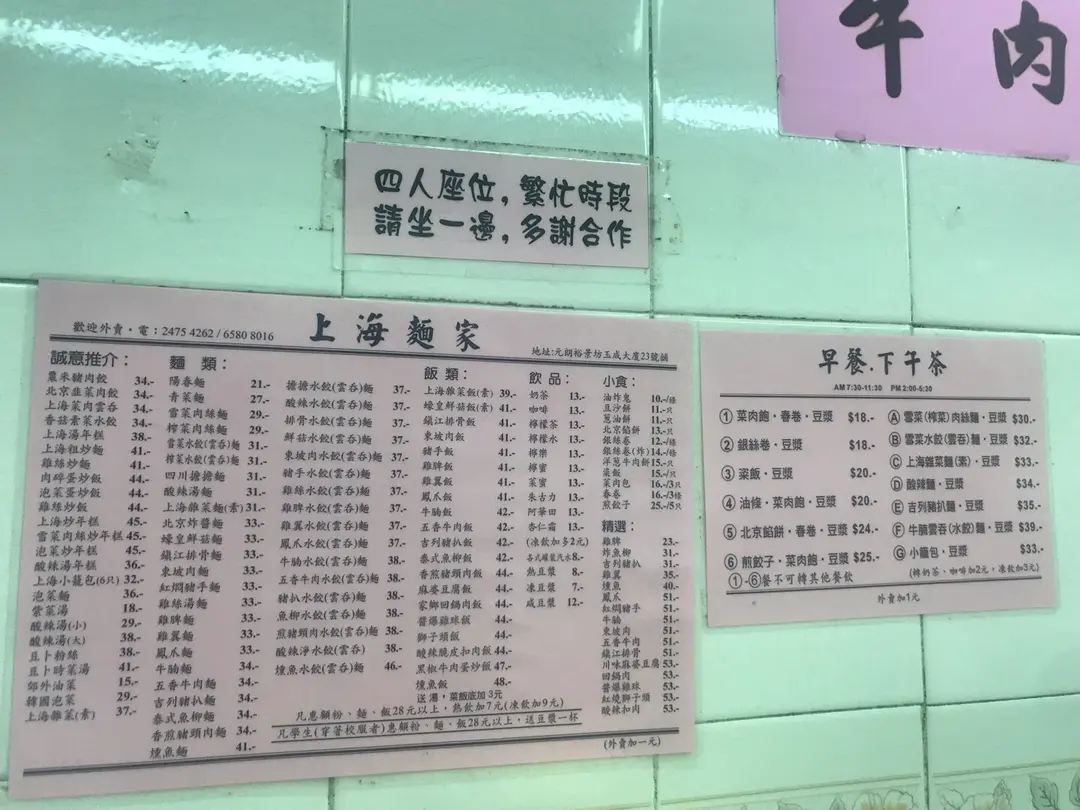 牛肉
四人座位，繁忙時段
請坐一邊，多謝合作
歡迎外賣·電：2475 4262 / 6580 8016
上海麵家
地址:元朗裕景坊玉成大廈23號舖
誠意推介：
農米豬肉餃 34.-
北京韭菜肉餃 34.-
上海菜肉雲吞 34.-
香菇素菜水餃 34.-
上海湯年糕 38.-
上海粗炒麵 41.-
雞絲炒麵 41.-
肉碎蛋炒飯 44.-
泡菜蛋炒飯 44.-
雞絲炒飯 44.-
上海炒年糕 45.-
雪菜肉絲炒年糕 45.-
泡菜炒年糕 45.-
酸辣湯年糕 36.-
上海小籠包(6只) 32.-
泡菜麵 36.-
紫菜湯 18.-
酸辣湯(小) 29.-
酸辣湯(大) 38.-
豆卜粉絲 38.-
豆卜時菜湯 41.-
郊外油菜 15.-
韓國泡菜 29.-
上海雜菜(素) 37.-
麵類：
陽春麵 21.-
青菜麵 27.-
雪菜肉絲麵 29.-
榨菜肉絲麵 29.-
雪菜水餃(雲吞)麵 31.-
榨菜水餃(雲吞)麵 31.-
四川擔擔麵 31.-
酸辣湯麵 31.-
上海雜菜麵(素) 31.-
北京炸醬麵 33.-
蠔皇鮮菇麵 33.-
鎮江排骨麵 33.-
東坡肉麵 33.-
紅燜豬手麵 33.-
雞絲湯麵 33.-
雞脾麵 33.-
雞翼麵 33.-
鳳爪麵 33.-
牛腩麵 34.-
五香牛肉麵 34.-
吉列豬扒麵 34.-
泰式魚柳麵 34.-
香煎豬頸肉麵 34.-
燻魚麵 41.-
擔擔水餃(雲吞)麵 37.-
酸辣水餃(雲吞)麵 37.-
排骨水餃(雲吞)麵 37.-
鮮菇水餃(雲吞)麵 37.-
東坡肉水餃(雲吞)麵 37.-
豬手水餃(雲吞)麵 37.-
雞絲水餃(雲吞)麵 37.-
雞脾水餃(雲吞)麵 37.-
雞翼水餃(雲吞)麵 37.-
鳳爪水餃(雲吞)麵 37.-
牛腩水餃(雲吞)麵 38.-
五香牛肉水餃(雲吞)麵 38.-
豬扒水餃(雲吞)麵 38.-
魚柳水餃(雲吞)麵 38.-
煎豬頸肉水餃(雲吞)麵 38.-
酸辣淨水餃(雲吞) 38.-
燻魚水餃(雲吞)麵 46.-
飯類：
上海雜菜飯(素) 39.-
蠔皇鮮菇飯(素) 41.-
鎮江排骨飯 41.-
東坡肉飯 41.-
豬手飯 41.-
雞脾飯 41.-
雞翼飯 41.-
鳳爪飯 41.-
牛腩飯 42.-
五香牛肉飯 42.-
吉列豬扒飯 42.-
泰式魚柳飯 42.-
香煎豬頸肉飯 44.-
麻婆豆腐飯 44.-
家鄉回鍋肉飯 44.-
醬爆雞球飯 44.-
獅子頭飯 44.-
酸辣脆皮扣肉飯 44.-
黑椒牛肉蛋炒飯 47.-
燻魚飯 48.-
送湯，菜飯底加 3元
飲品：
奶茶 13.-
咖啡 13.-
檸檬茶 13.-
檸檬水 13.-
檸樂 13.-
檸蜜 13.-
菜蜜 13.-
朱古力 13.-
阿華田 13.-
杏仁霜 13.-
(凍飲加多2元)
各式罐裝汽水 8.-
熱豆漿 8.-
凍豆漿 7.-
咸豆漿 12.-
小食：
油炸鬼 10.-/條
豆沙餅 11.-/只
蔥油餅 11.-/只
北京餡餅 13.-/只
銀絲卷 12.-/條
銀絲卷(炸) 14.-/條
洋蔥牛肉餅 15.-/只
粢飯 15.-/只
菜肉包 16.-/3只
春卷 16.-/3條
煎餃子 25.-/5只
精選：
雞脾 23.-
炸魚柳 31.-
吉列豬扒 31.-
雞翼 35.-
燻魚 40.-
鳳爪 51.-
紅燜豬手 51.-
牛腩 51.-
東坡肉 51.-
五香牛肉 51.-
鎮江排骨 51.-
川味麻婆豆腐 53.-
回鍋肉 53.-
醬爆雞球 53.-
紅燒獅子頭 53.-
酸辣扣肉 53.-
凡惠顧粉、麵、飯28元以上，熱飲加7元(凍飲加9元)
凡學生(穿著校服者)惠顧粉、麵、飯28元以上，送豆漿一杯
(外賣加一元)
早餐．下午茶
AM 7:30-11:30 PM 2:00-5:30
① 菜肉飽·春卷·豆漿 $18.-
② 銀絲卷·豆漿 $18.-
③ 粢飯·豆漿 $20.-
④ 油條·菜肉飽·豆漿 $20.-
⑤ 北京餡餅·春卷·豆漿 $24.-
⑥ 煎餃子·菜肉飽·豆漿 $25.-
①-⑥餐不可轉其他餐飲
Ⓐ 雪菜(榨菜)肉絲麵·豆漿 $30.-
Ⓑ 雪菜水餃(雲吞)麵·豆漿 $32.-
Ⓒ 上海雜菜麵(素)·豆漿 $33.-
Ⓓ 酸辣麵·豆漿 $34.-
Ⓔ 吉列豬扒麵·豆漿 $35.-
Ⓕ 牛腩雲吞(水餃)麵·豆漿 $39.-
Ⓖ 小籠包·豆漿 $33.-
(轉奶茶、咖啡加2元，凍飲加3元)
外賣加1元